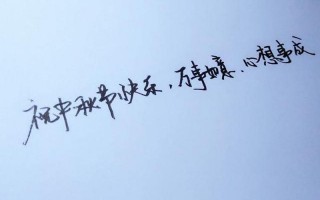 祝中秋节快乐，万事如意，心想事成